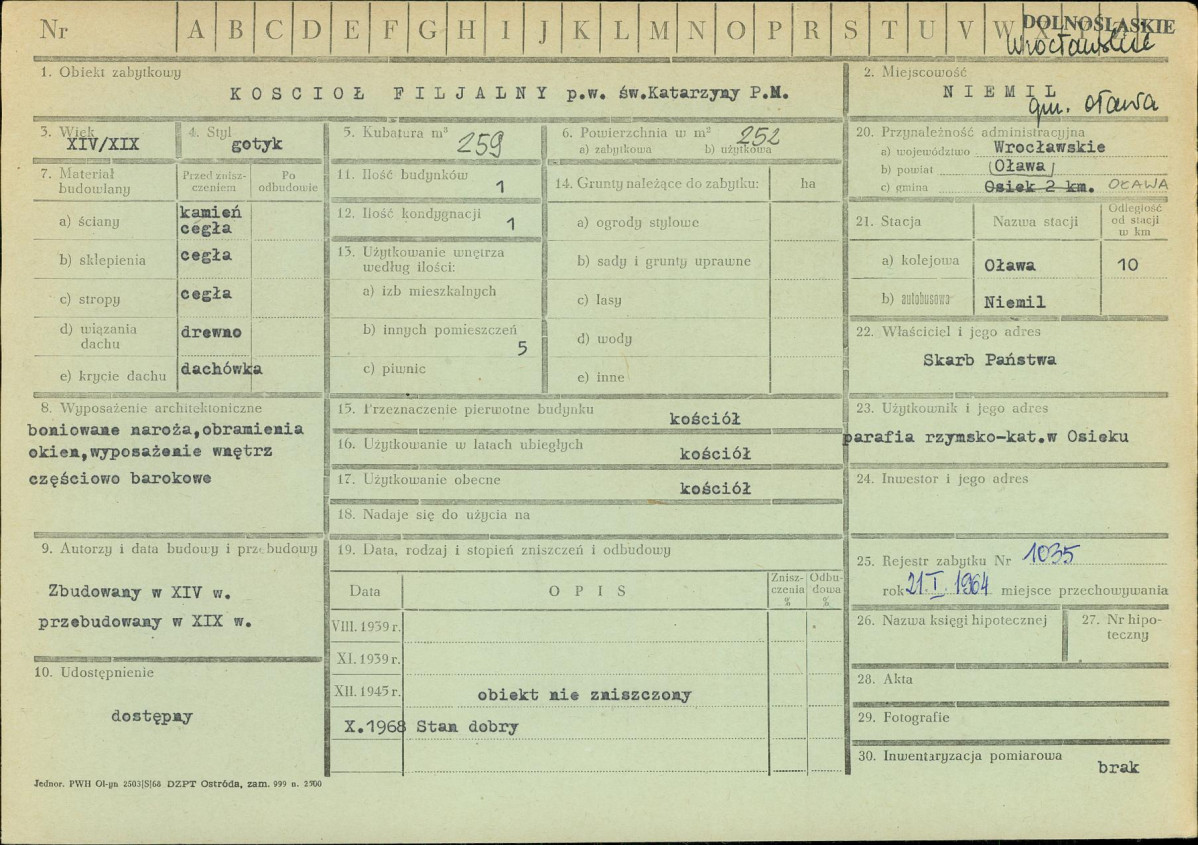 Nr A B C D E F G H I J K L M N O P R S T U V W X Y Z
DOLNOŚLĄSKIE
Wrocławskie
1. Obiekt zabytkowy
KOSCIOŁ FILJALNY p.w. św.Katarzyny P.M.
2. Miejscowość
NIEMIL
gm. Oława
3. Wiek
XIV/XIX
4. Styl
gotyk
5. Kubatura m³
259
6. Powierzchnia w m²
252
a) zabytkowa b) użytkowa
7. Materiał budowlany
Przed zniszczeniem
Po odbudowie
a) ściany
kamień
cegła
b) sklepienia
cegła
c) stropy
cegła
d) wiązania dachu
drewno
e) krycie dachu
dachówka
8. Wyposażenie architektoniczne
boniowane naroża,obramienia
okien,wyposażenie wnętrz
częściowo barokowe
9. Autorzy i data budowy i przebudowy
Zbudowany w XIV w.
przebudowany w XIX w.
10. Udostępnienie
dostępny
11. Ilość budynków
1
12. Ilość kondygnacji
1
13. Użytkowanie wnętrza
według ilości:
a) izb mieszkalnych
b) innych pomieszczeń
5
c) piwnic
14. Grunty należące do zabytku: ha
a) ogrody stylowe
b) sady i grunty uprawne
c) lasy
d) wody
e) inne
15. Przeznaczenie pierwotne budynku
kościół
16. Użytkowanie w latach ubiegłych
kościół
17. Użytkowanie obecne
kościół
18. Nadaje się do użycia na
19. Data, rodzaj i stopień zniszczeń i odbudowy
Data
OPIS
Zniszczenia %
Odbudowa %
VIII. 1939 r.
XI. 1939 r.
XII. 1945 r. obiekt nie zniszczony
X.1968 Stan dobry
20. Przynależność administracyjna
a) województwo Wrocławskie
b) powiat (Oława)
c) gmina Osiek 2 km. OŁAWA
21. Stacja
Nazwa stacji
Odległość od stacji w km
a) kolejowa Oława 10
b) autobusowa Niemil
22. Właściciel i jego adres
Skarb Państwa
23. Użytkownik i jego adres
parafia rzymsko-kat.w Osieku
24. Inwestor i jego adres
25. Rejestr zabytku Nr 1035
rok 21.I.1964 miejsce przechowywania
26. Nazwa księgi hipotecznej
27. Nr hipoteczny
28. Akta
29. Fotografie
30. Inwentaryzacja pomiarowa
brak
Jednor. PWH Ol-yn 2503|S|68 DZPT Ostróda, zam. 999 n. 2500